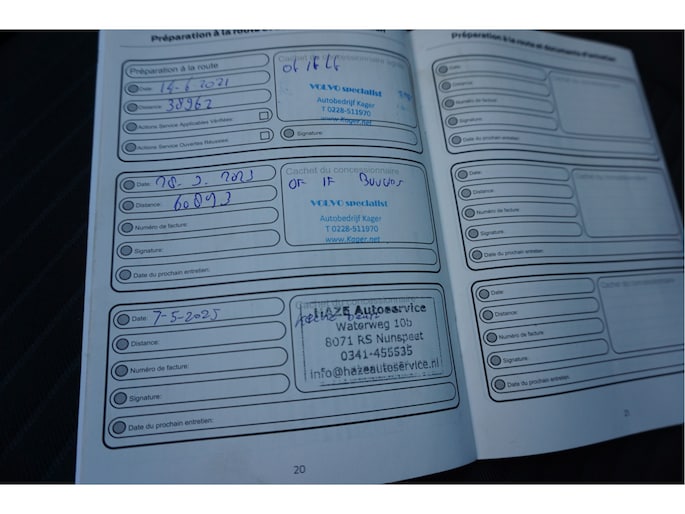 Préparation à la route
Préparation à la route
Cachet du concessionnaire
Date: 14-6 2021
Distance: 38962
Actions Service Applicables Vérifiées:
Actions Service Ouvertes Réussies:
VOLVO specialist
Autobedrijf Kager
T 0228-511970
www.Kager.net
Signature:
Cachet du concessionnaire
Date:
Distance: 60893
Numéro de facture:
Signature:
Date du prochain entretien:
VOLVO specialist
Autobedrijf Kager
T 0228-511970
www.Kager.net
Cachet du concessionnaire
Date: 7-5-2025
Distance:
Numéro de facture:
Signature:
Date du prochain entretien:
HAZE Autoservice
Waterweg 10b
8071 RS Nunspeet
0341-455535
info@hazeautoservice.nl
20
Préparation à la route et documents d'entretien
Date:
Distance:
Numéro de facture:
Signature:
Date du prochain entretien:
Cachet du concessionnaire
Date:
Distance:
Numéro de facture:
Signature:
Date du prochain entretien:
Cachet du concessionnaire
Date:
Distance:
Numéro de facture:
Signature:
Date du prochain entretien:
Cachet du concessionnaire